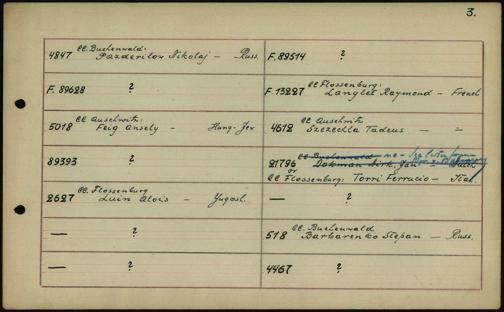 3.
CC. Buchenwald:
4847 Pazderilov Nikolaj - Russ.
F. 89514 ?
F. 89628 ?
CC Flossenburg:
F. 13227 Langlet Raymond - French
CC Auschwitz
5018 Feig Ansely - Hung-Jew
CC Auschwitz
4612 Szczechla Tadeus - -
89393 ?
CC Buchenwald
21796 Dokman Dirk, Jan
or
CC Flossenburg: Torri Ferrucio - Ital.
CC. Flossenburg
2627 Luin Alois - Yugosl.
— ?
— ?
CC. Buchenwald
518 Barbarenko Stepan - Russ.
— ?
4467 ?